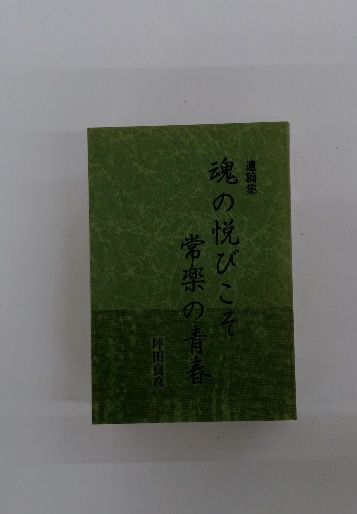 遺稿集
魂の悦びこそ
常楽の青春
坪田良彦